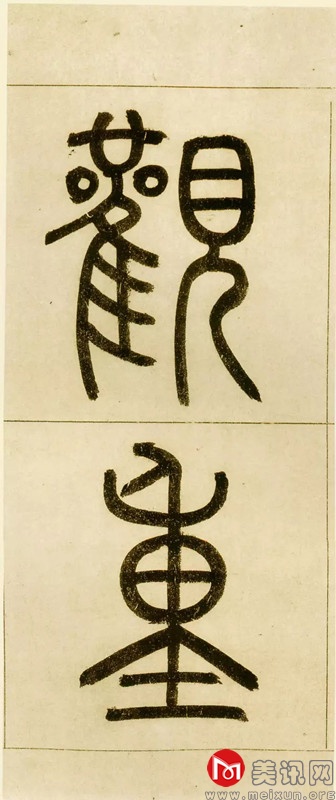 觀
重
美讯网
www.meixun.org